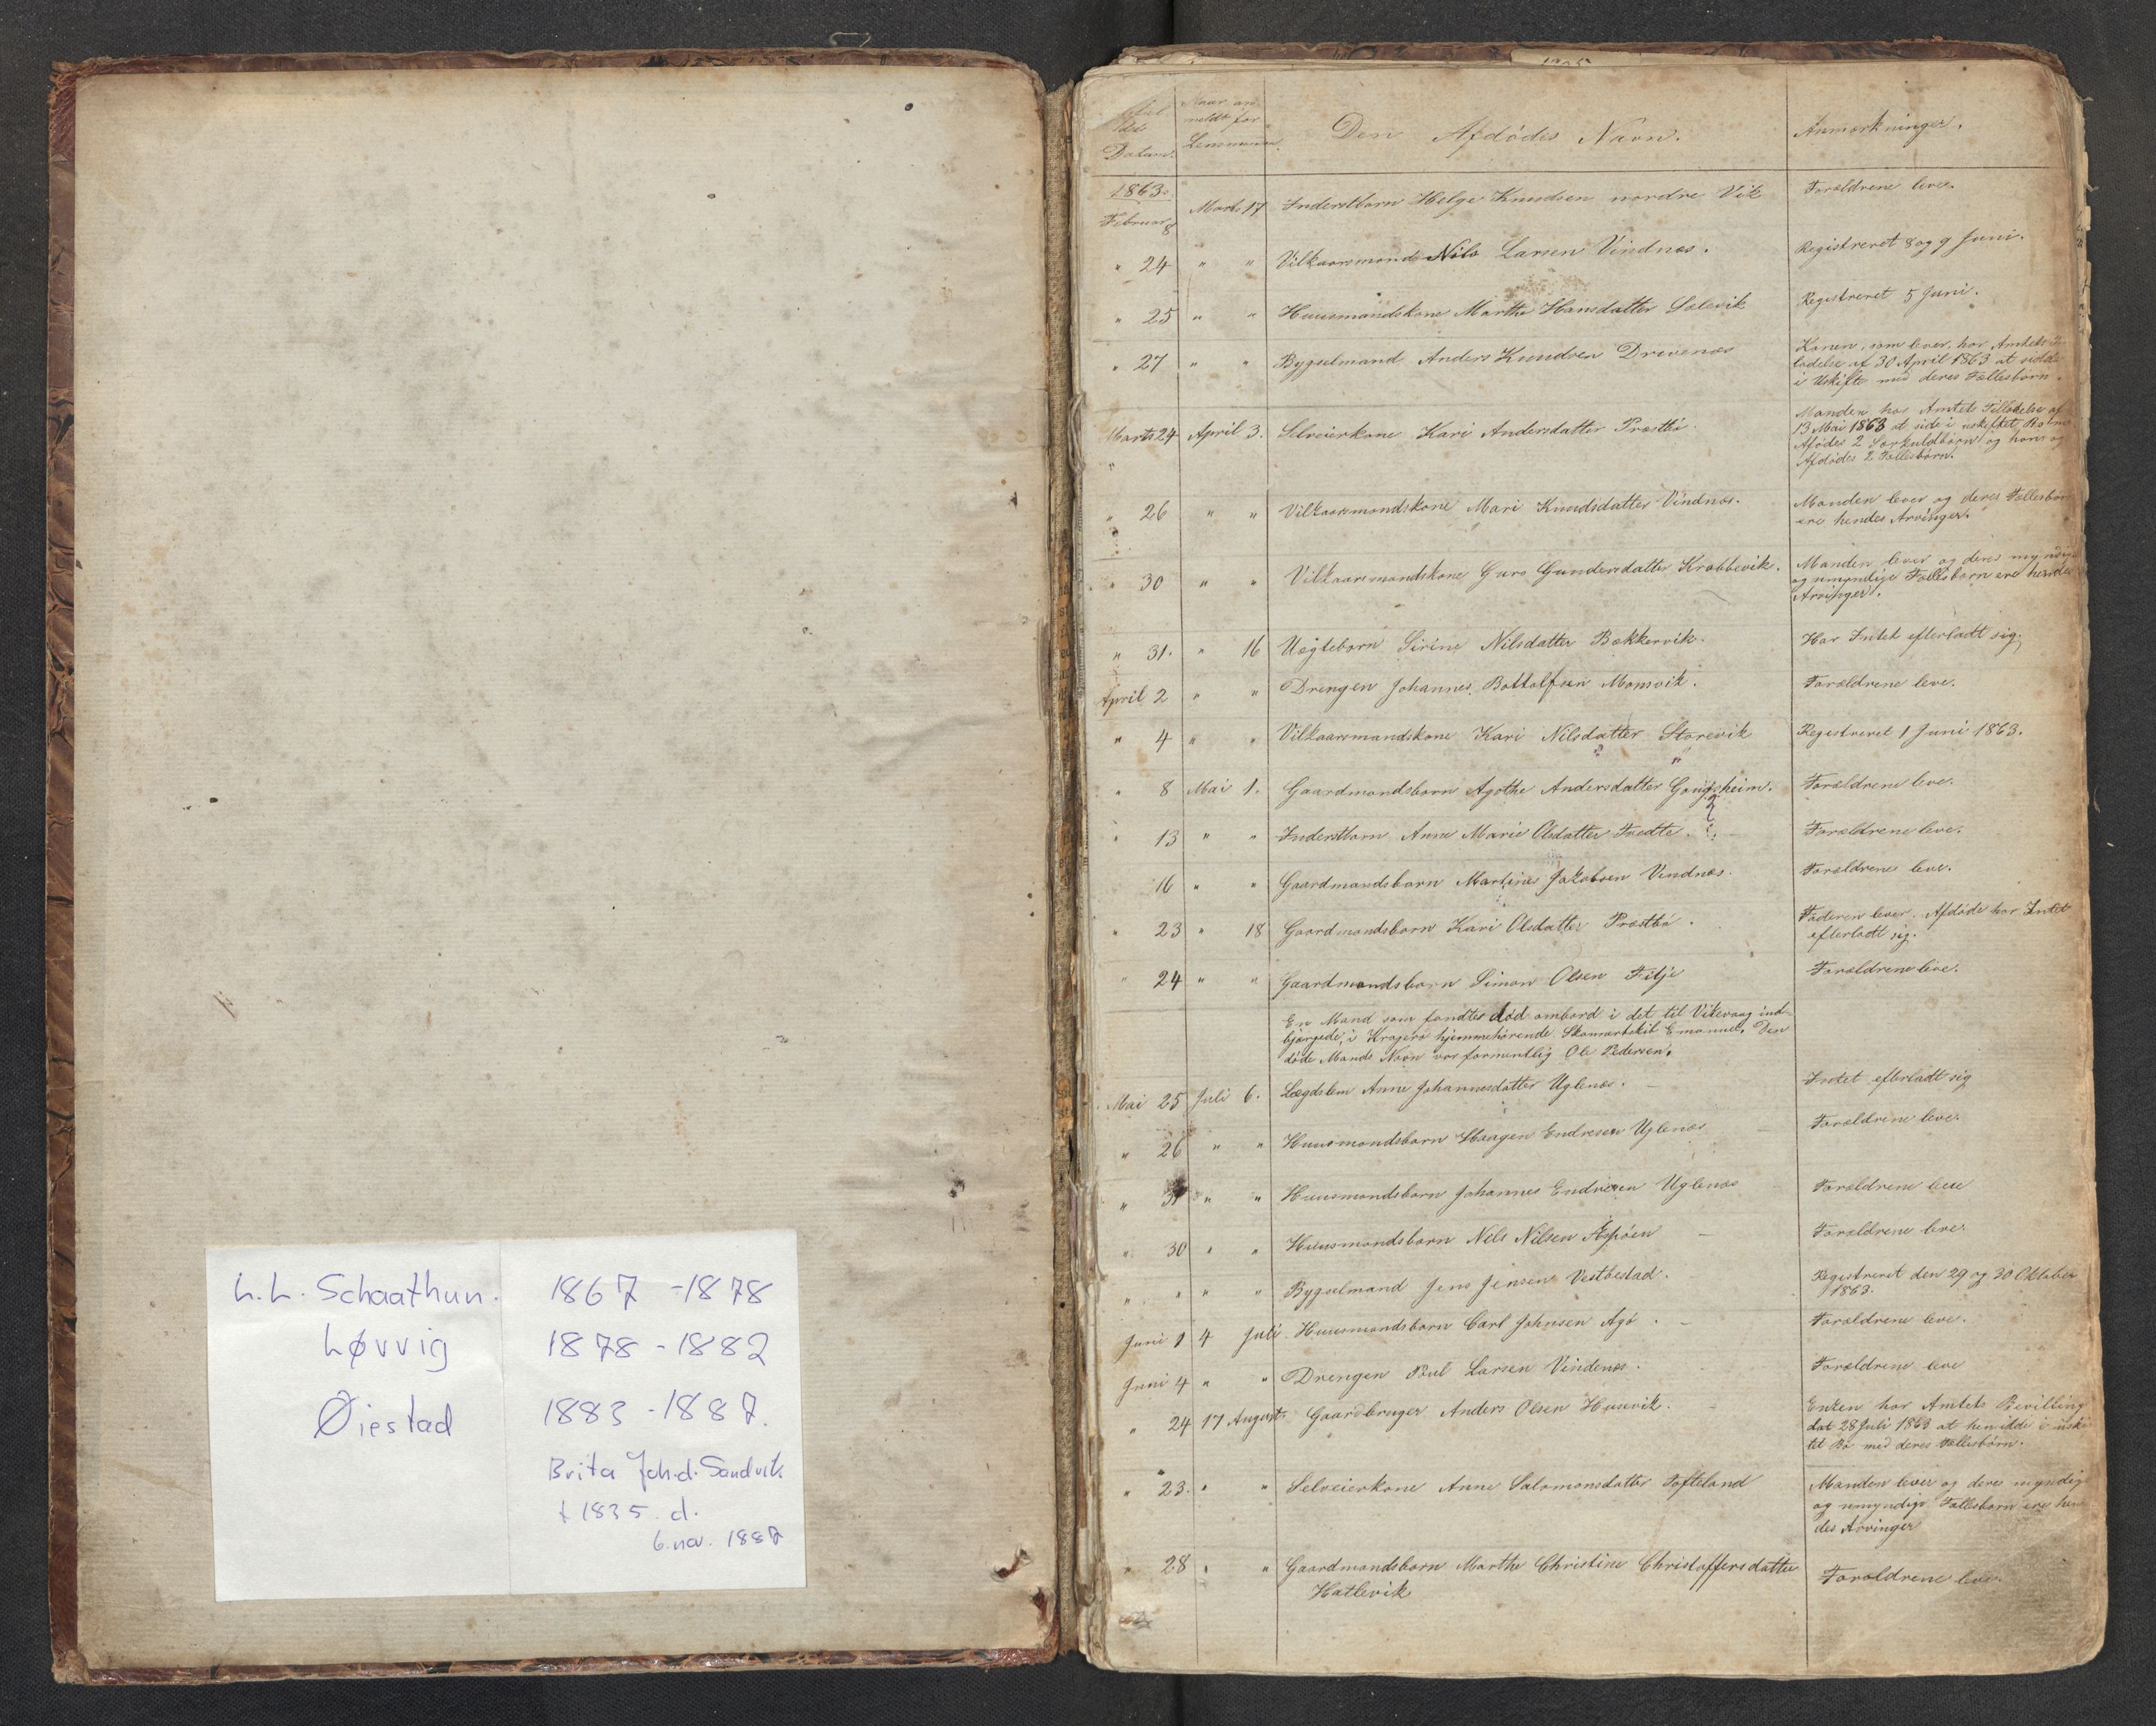 L.L. Schaathun. 1867 - 1878
Løvvig 1878 - 1882
Øiestad 1883 - 1887.
Brita Joh.d. Sandvik
f 1835. d.
6. nov. 1887
Datum. Naar an-
meldt for
Lensmanden. Den Afdødes Navn. Anmærkninger.
1863.
Februar 8 Marts 17 Inderstbarn Helge Knudsen nordre Vik Forældrene leve.
" 24 " " Vilkaarsmand Nils Larsen Vindnæs. Registreret 8 og 9 Juni.
" 25 " " Huusmandskone Marthe Hansdatter Sælevik Registreret 5 Juni.
" 27 " " Bygselmand Anders Knudsen Drivenæs Konen, som lever, har Amtets
ladelse af 30 April 1863 at sidde
i Uskifte med deres Fællesbørn.
Marts 24 April 3. Selveierkone Kari Andersdatter Præstbø Manden har Amtets Tilladelse af
13 Mai 1863 at side i uskiftet Bo
Afdødes 2 Særkuldbørn og hans og
Afdødes 2 Fællesbørn.
" 26 " " Vilkaarsmandskone Mari Knudsdatter Vindnæs. Manden lever og deres Fællesbørn
ere hendes Arvinger.
" 30 " " Vilkaarsmandskone Guro Gundersdatter Krabbevik. Manden lever og deres myndige
og umyndige Fællesbørn ere hendes
Arvinger.
" 31. " 16 Uægtebarn Sirine Nilsdatter Bækkervik. Har Intet efterladt sig.
April 2 " " Drengen Johannes Bottolfsen Momvik. Forældrene leve.
" 4 " " Vilkaarsmandskone Kari Nilsdatter Storevik Registreret 1 Juni 1863.
" 8 Mai 1. Gaardmandsbarn Agathe Andersdatter Gongsheim. Forældrene leve.
" 13 " " Inderstbarn Anne Marie Olsdatter Tvedte. Forældrene leve.
16 " " Gaardmandsbarn Martines Jakobsen Vindnæs. Forældrene leve.
" 23 " 18 Gaardmandsbarn Kari Olsdatter Præstbø. Faderen lever. Afdøde har Intet
efterladt sig.
" 24 " " Gaardmandsbarn Simon Olsen Fitje Forældrene leve.
En Mand som fandtes død ombord i det til Vikevaag ind-
bjærgede, i Kragerø hjemmehørende Skonnertskib Emanuel. Den
døde Mands Navn var formentlig Ole Pedersen.
Mai 25 Juli 6. Lægdslem Anne Johannesdatter Uglenæs. Intet efterladt sig
" 26 " " Huusmandsbarn Haagen Endresen Uglenæs Forældrene leve.
" 31 " " Huusmandsbarn Johannes Endresen Uglenæs Forældrene leve
" 30 " " Huusmandsbarn Nils Nilsen Aspøen Forældrene leve
" " " " Bygselmand Jens Jensen Vestbøstad. Registreret den 29 og 30 Oktober
1863.
Juni 1 4 Juli Huusmandsbarn Carl Johnsen Agø. Forældrene leve.
Juni 4 " " Drengen Poul Larsen Vindenæs. Forældrene leve
" 24 17 August Gaardbruger Anders Olsen Huusvik. Enken har Amtets Bevilling
dat 28 Juli 1863 at hensidde i uski
tet Bo med deres Fællesbørn.
" 23. " " Selveierkone Anne Salomonsdatter Tofteland Manden lever og deres myndige
og umyndige Fællesbørn ere hen
des Arvinger
" 28 " " Gaardmandsbarn Marthe Christine Christoffersdatter
Hatlevik Forældrene leve.